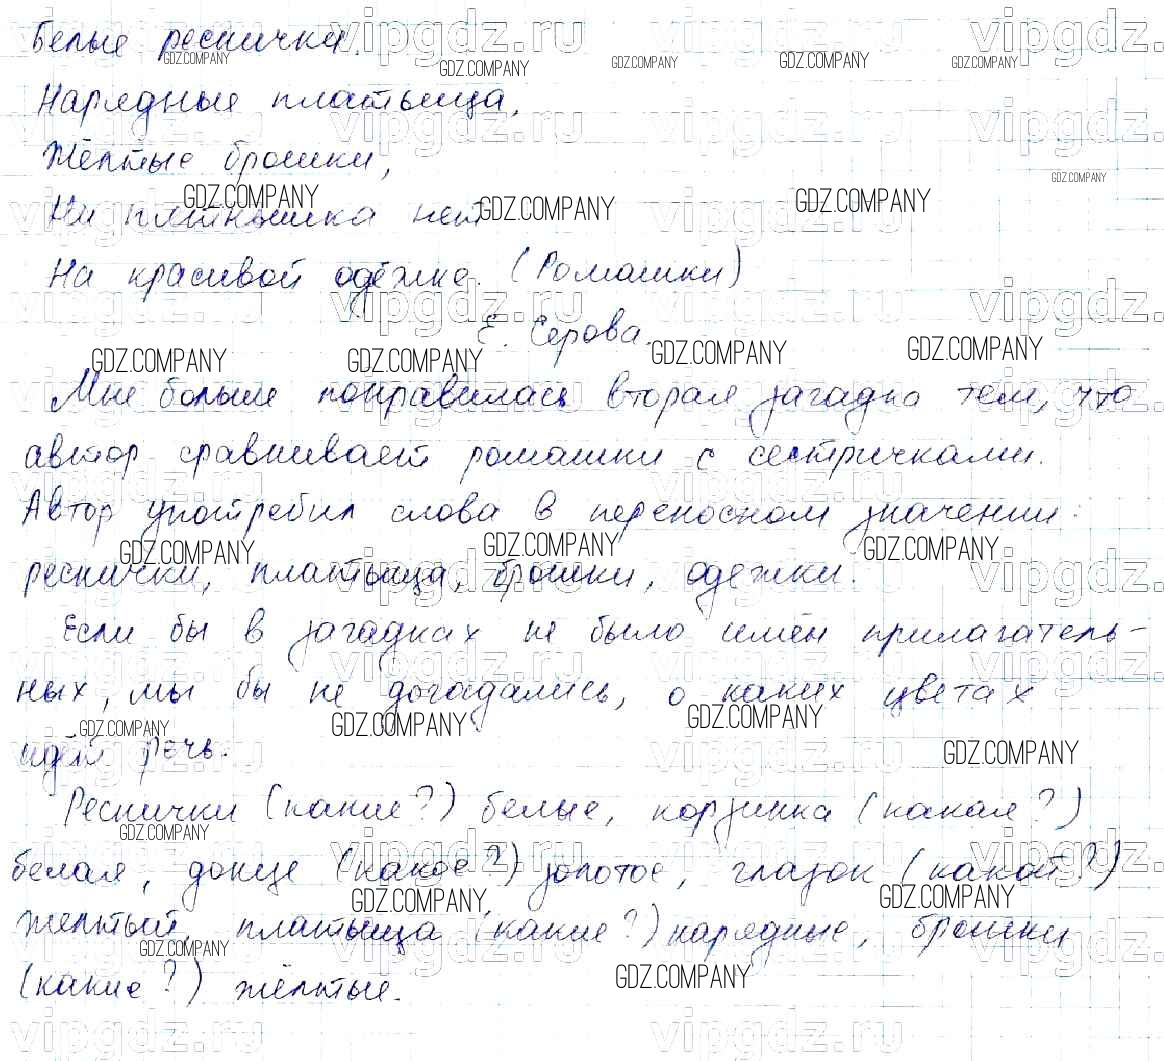 Белые реснички.
Нарядные платьица,
Жёлтые брошки,
Ни пятнышка нет
На красивой одёжке. (Ромашки)
Е. Серова.
Мне больше понравилась вторая загадка тем, что
автор сравнивает ромашки с сестричками.
Автор употребил слова в переносном значении:
реснички, платьица, брошки, одежки.
Если бы в загадках не было имён прилагатель-
ных, мы бы не догадались, о каких цветах
идёт речь.
Реснички (какие?) белые, корзинка (какая?)
белая, донце (какое?) золотое, глазок (какой?)
желтый, платьица (какие?) нарядные, брошки
(какие?) жёлтые.
vipgdz.ru
GDZ.COMPANY